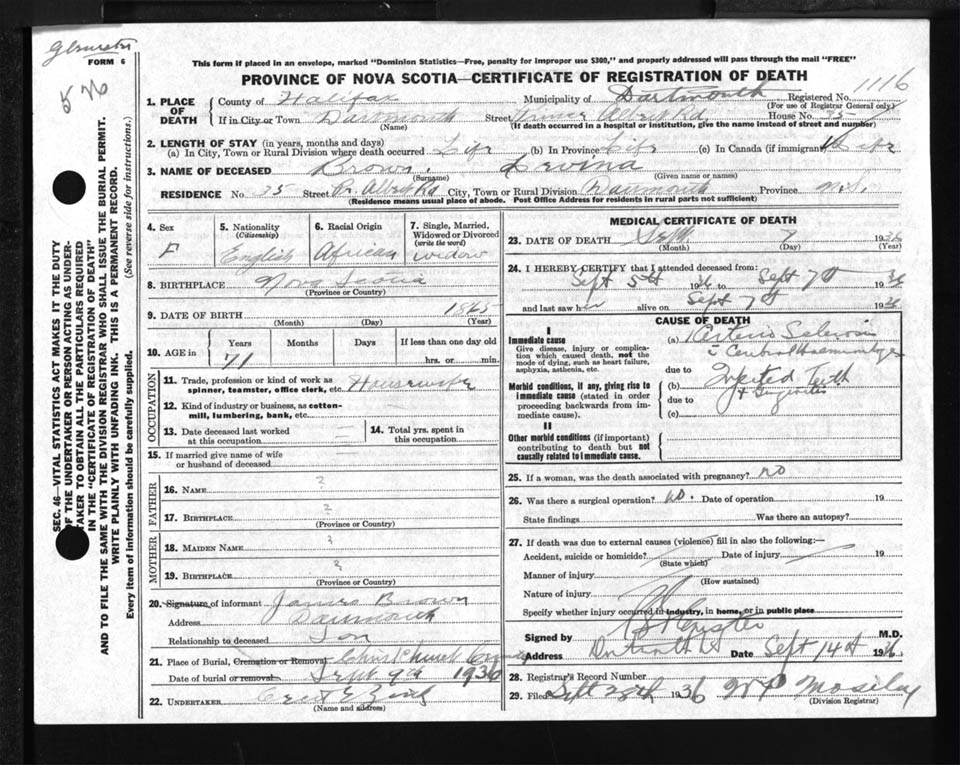 FORM 6
5 26
This form if placed in an envelope, marked "Dominion Statistics—Free, penalty for improper use $300," and properly addressed will pass through the mail "FREE"
PROVINCE OF NOVA SCOTIA—CERTIFICATE OF REGISTRATION OF DEATH
1116
1. PLACE OF DEATH
County of Halifax Municipality of Dartmouth Registered No.
(For use of Registrar General only)
If in City or Town Dartmouth Street Prince Albert Rd House No. 35
(Name) (If death occurred in a hospital or institution, give the name instead of street and number)
2. LENGTH OF STAY (in years, months and days)
(a) In City, Town or Rural Division where death occurred Life (b) In Province Life (c) In Canada (if immigrant) Life
3. NAME OF DECEASED Brown Levina
(Surname) (Given name or names)
RESIDENCE No. 35 Street Pr. Albert Rd City, Town or Rural Division Dartmouth Province N.S.
(Residence means usual place of abode. Post Office Address for residents in rural parts not sufficient)
4. Sex
F
5. Nationality
(Citizenship)
English
6. Racial Origin
African
7. Single, Married, Widowed or Divorced
(write the word)
widow
8. BIRTHPLACE Nova Scotia
(Province or Country)
9. DATE OF BIRTH 1865
(Month) (Day) (Year)
10. AGE in Years Months Days If less than one day old
71 hrs. or min.
OCCUPATION
11. Trade, profession or kind of work as
spinner, teamster, office clerk, etc. Housewife
12. Kind of industry or business, as cotton-
mill, lumbering, bank, etc.
13. Date deceased last worked
at this occupation
14. Total yrs. spent in
this occupation
15. If married give name of wife
or husband of deceased
FATHER
16. NAME ?
17. BIRTHPLACE ?
(Province or Country)
MOTHER
18. MAIDEN NAME ?
19. BIRTHPLACE ?
(Province or Country)
20. Signature of informant James Brown
Address Dartmouth
Relationship to deceased Son
21. Place of Burial, Cremation or Removal Christ Church
Date of burial or removal Sept 9th 1936
22. UNDERTAKER
(Name and address)
MEDICAL CERTIFICATE OF DEATH
23. DATE OF DEATH Sept 7 1936
(Month) (Day) (Year)
24. I HEREBY CERTIFY that I attended deceased from:
Sept 5th 1936 to Sept 7th 1936
and last saw her alive on Sept 7th 1936
CAUSE OF DEATH
I
Immediate cause
Give disease, injury or compli-
cation which caused death, not the
mode of dying, such as heart failure,
asphyxia, asthenia, etc.
(a) Arterio Sclerosis
Cerebral Haemorrhage
due to
Morbid conditions, if any, giving rise to
immediate cause (stated in order
proceeding backwards from im-
mediate cause).
(b) Infected Teeth
& Gingivitis
due to
(c)
II
Other morbid conditions (if important)
contributing to death but not
causally related to immediate cause.
25. If a woman, was the death associated with pregnancy? no
26. Was there a surgical operation? no. Date of operation 19
State findings Was there an autopsy?
27. If death was due to external causes (violence) fill in also the following:—
Accident, suicide or homicide? Date of injury 19
(State which)
Manner of injury
(How sustained)
Nature of injury
Specify whether injury occurred in industry, in home, or in public place
Signed by M.D.
Address Dartmouth Date Sept 14th 1936
28. Registrar's Record Number
29. Filed Sept 28th 1936
(Division Registrar)
SEC. 46—VITAL STATISTICS ACT MAKES IT THE DUTY
OF THE UNDERTAKER OR PERSON ACTING AS UNDER-
TAKER TO OBTAIN ALL THE PARTICULARS REQUIRED
IN THE "CERTIFICATE OF REGISTRATION OF DEATH"
AND TO FILE THE SAME WITH THE DIVISION REGISTRAR WHO SHALL ISSUE THE BURIAL PERMIT.
WRITE PLAINLY WITH UNFADING INK. THIS IS A PERMANENT RECORD.
Every item of information should be carefully supplied. (See reverse side for instructions.)